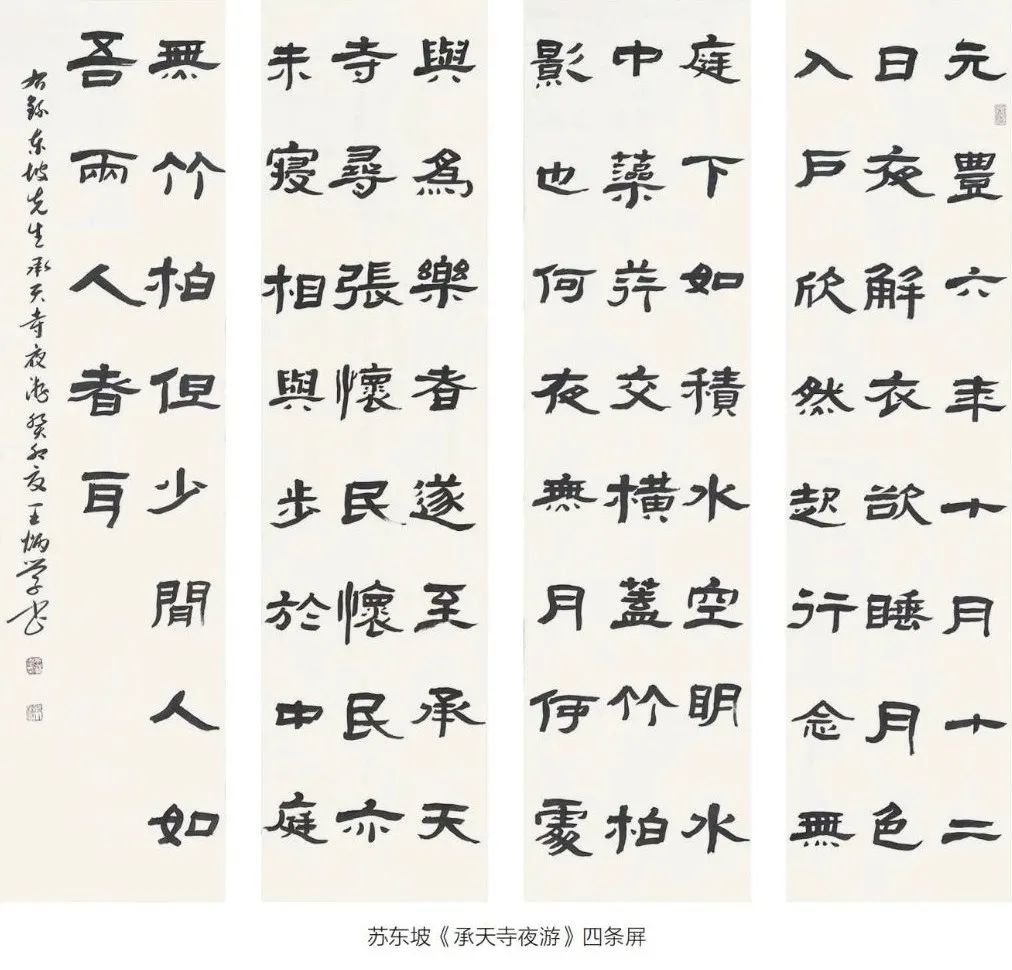 元豐六年十月十二
日夜解衣欲睡月色
入戶欣然起行念無
庭下如積水空明水
中藻荇交橫蓋竹柏
影也何夜無月何處
與為樂者遂至承天
寺尋張懷民懷民亦
未寢相與步於中庭
無竹柏但少閒人如
吾兩人者耳
右錄東坡先生承天寺夜游癸卯夏王炳学书
苏东坡《承天寺夜游》四条屏